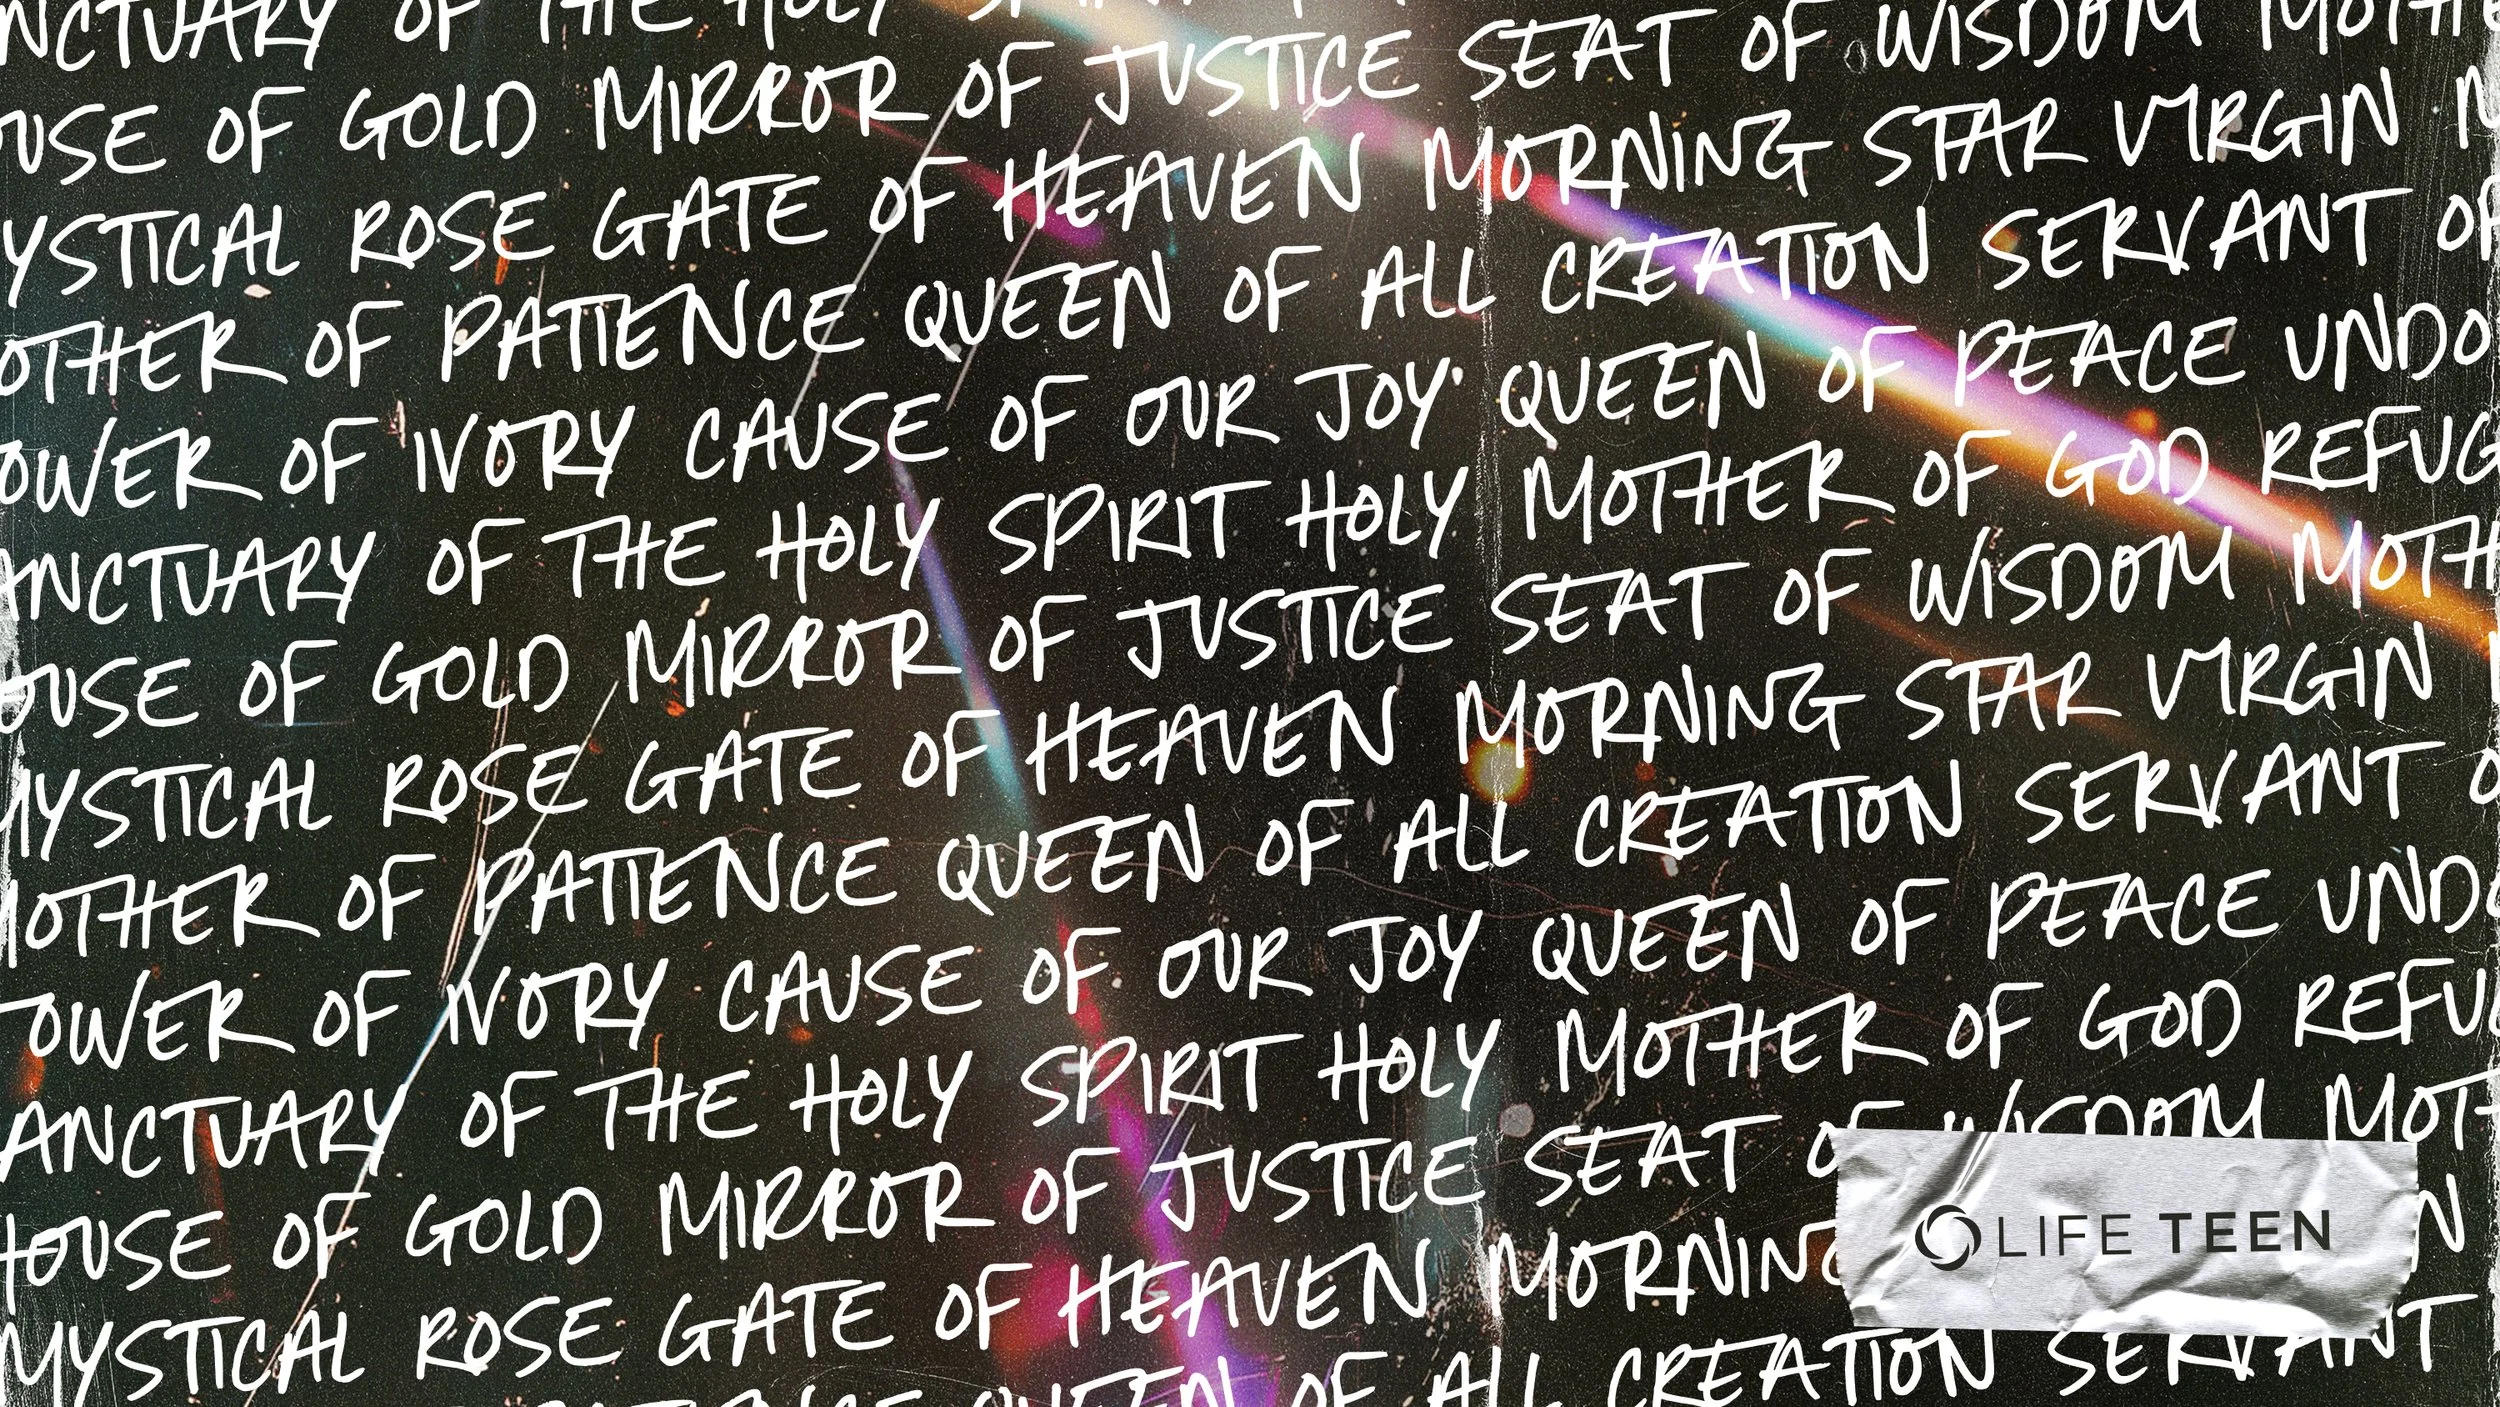 OF THE HOLY
OF GOLD MIRROR OF JUSTICE SEAT OF WISDOM
YSTICAL ROSE GATE OF HEAVEN MORNING STAR VIRGIN
OTHER OF PATIENCE QUEEN OF ALL CREATION SERVANT OF
OWER OF IVORY CAUSE OF OUR JOY QUEEN OF PEACE UNDO
ANCTUARY OF THE HOLY SPIRIT HOLY MOTHER OF GOD REFUG
OUSE OF GOLD MIRROR OF JUSTICE SEAT OF WISDOM MOTH
MYSTICAL ROSE GATE OF HEAVEN MORNING STAR VIRGIN
MOTHER OF PATIENCE QUEEN OF ALL CREATION SERVANT O
TOWER OF IVORY CAUSE OF OUR JOY QUEEN OF PEACE UNDO
SANCTUARY OF THE HOLY SPIRIT HOLY MOTHER OF GOD REFU
HOUSE OF GOLD MIRROR OF JUSTICE SEAT OF WISDOM MOT
MYSTICAL ROSE GATE OF HEAVEN MORNING
QUEEN OF ALL CREATION SERVANT
LIFE TEEN